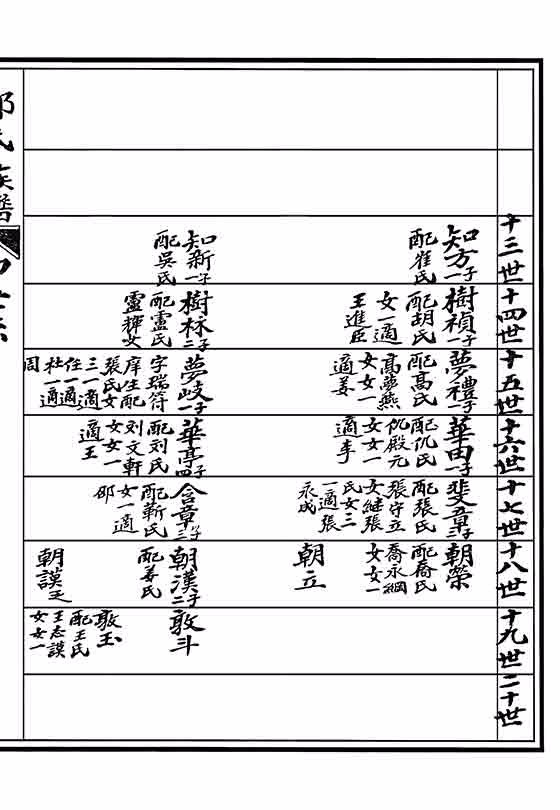 十三世
十四世
十五世
十六世
十七世
十八世
十九世
二十世
知方一子
配崔氏
知新一子
配吳氏
樹禎一子
配胡氏
女一適
王進臣
樹林二子
配盧氏
盧輝女
夢禮一子
配高氏
高夢燕
女女一
適姜
夢岐一子
字瑞符
庠生配
張氏女
三一適
任一適
杜一適
周
華田一子
配仇氏
仇殿元
女女一
適李
華亭四子
配劉氏
劉文軒
女女一
適王
斐章二子
配張氏
張守立
女繼張
氏女三
一適張
永成
含章三子
配靳氏
女一適
邵
朝榮
配喬氏
喬永綱
女女一
朝立
朝漢二子
配姜氏
朝謨
敦斗
敦玉
配王氏
王志謨
女女一
氏族譜